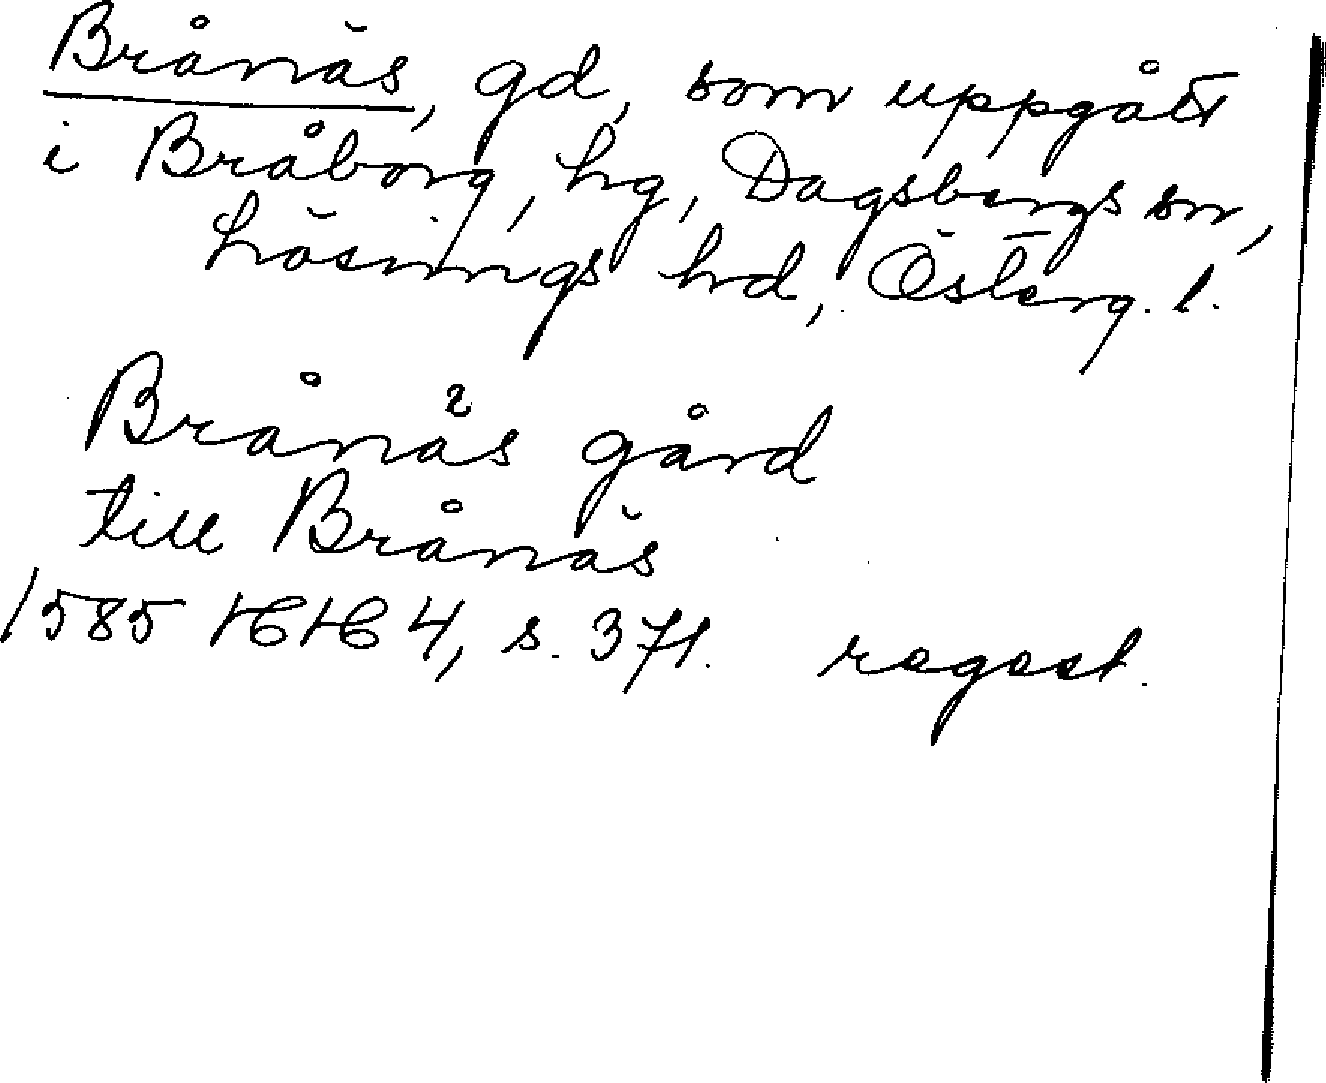 Brånäs, gd, som uppgått
i Bråborg, hg, Dagsbergs sn,
Lösings hd, Österg. l.
Brånås gård
till Brånäs
1585 HH 4, s. 371. regest.